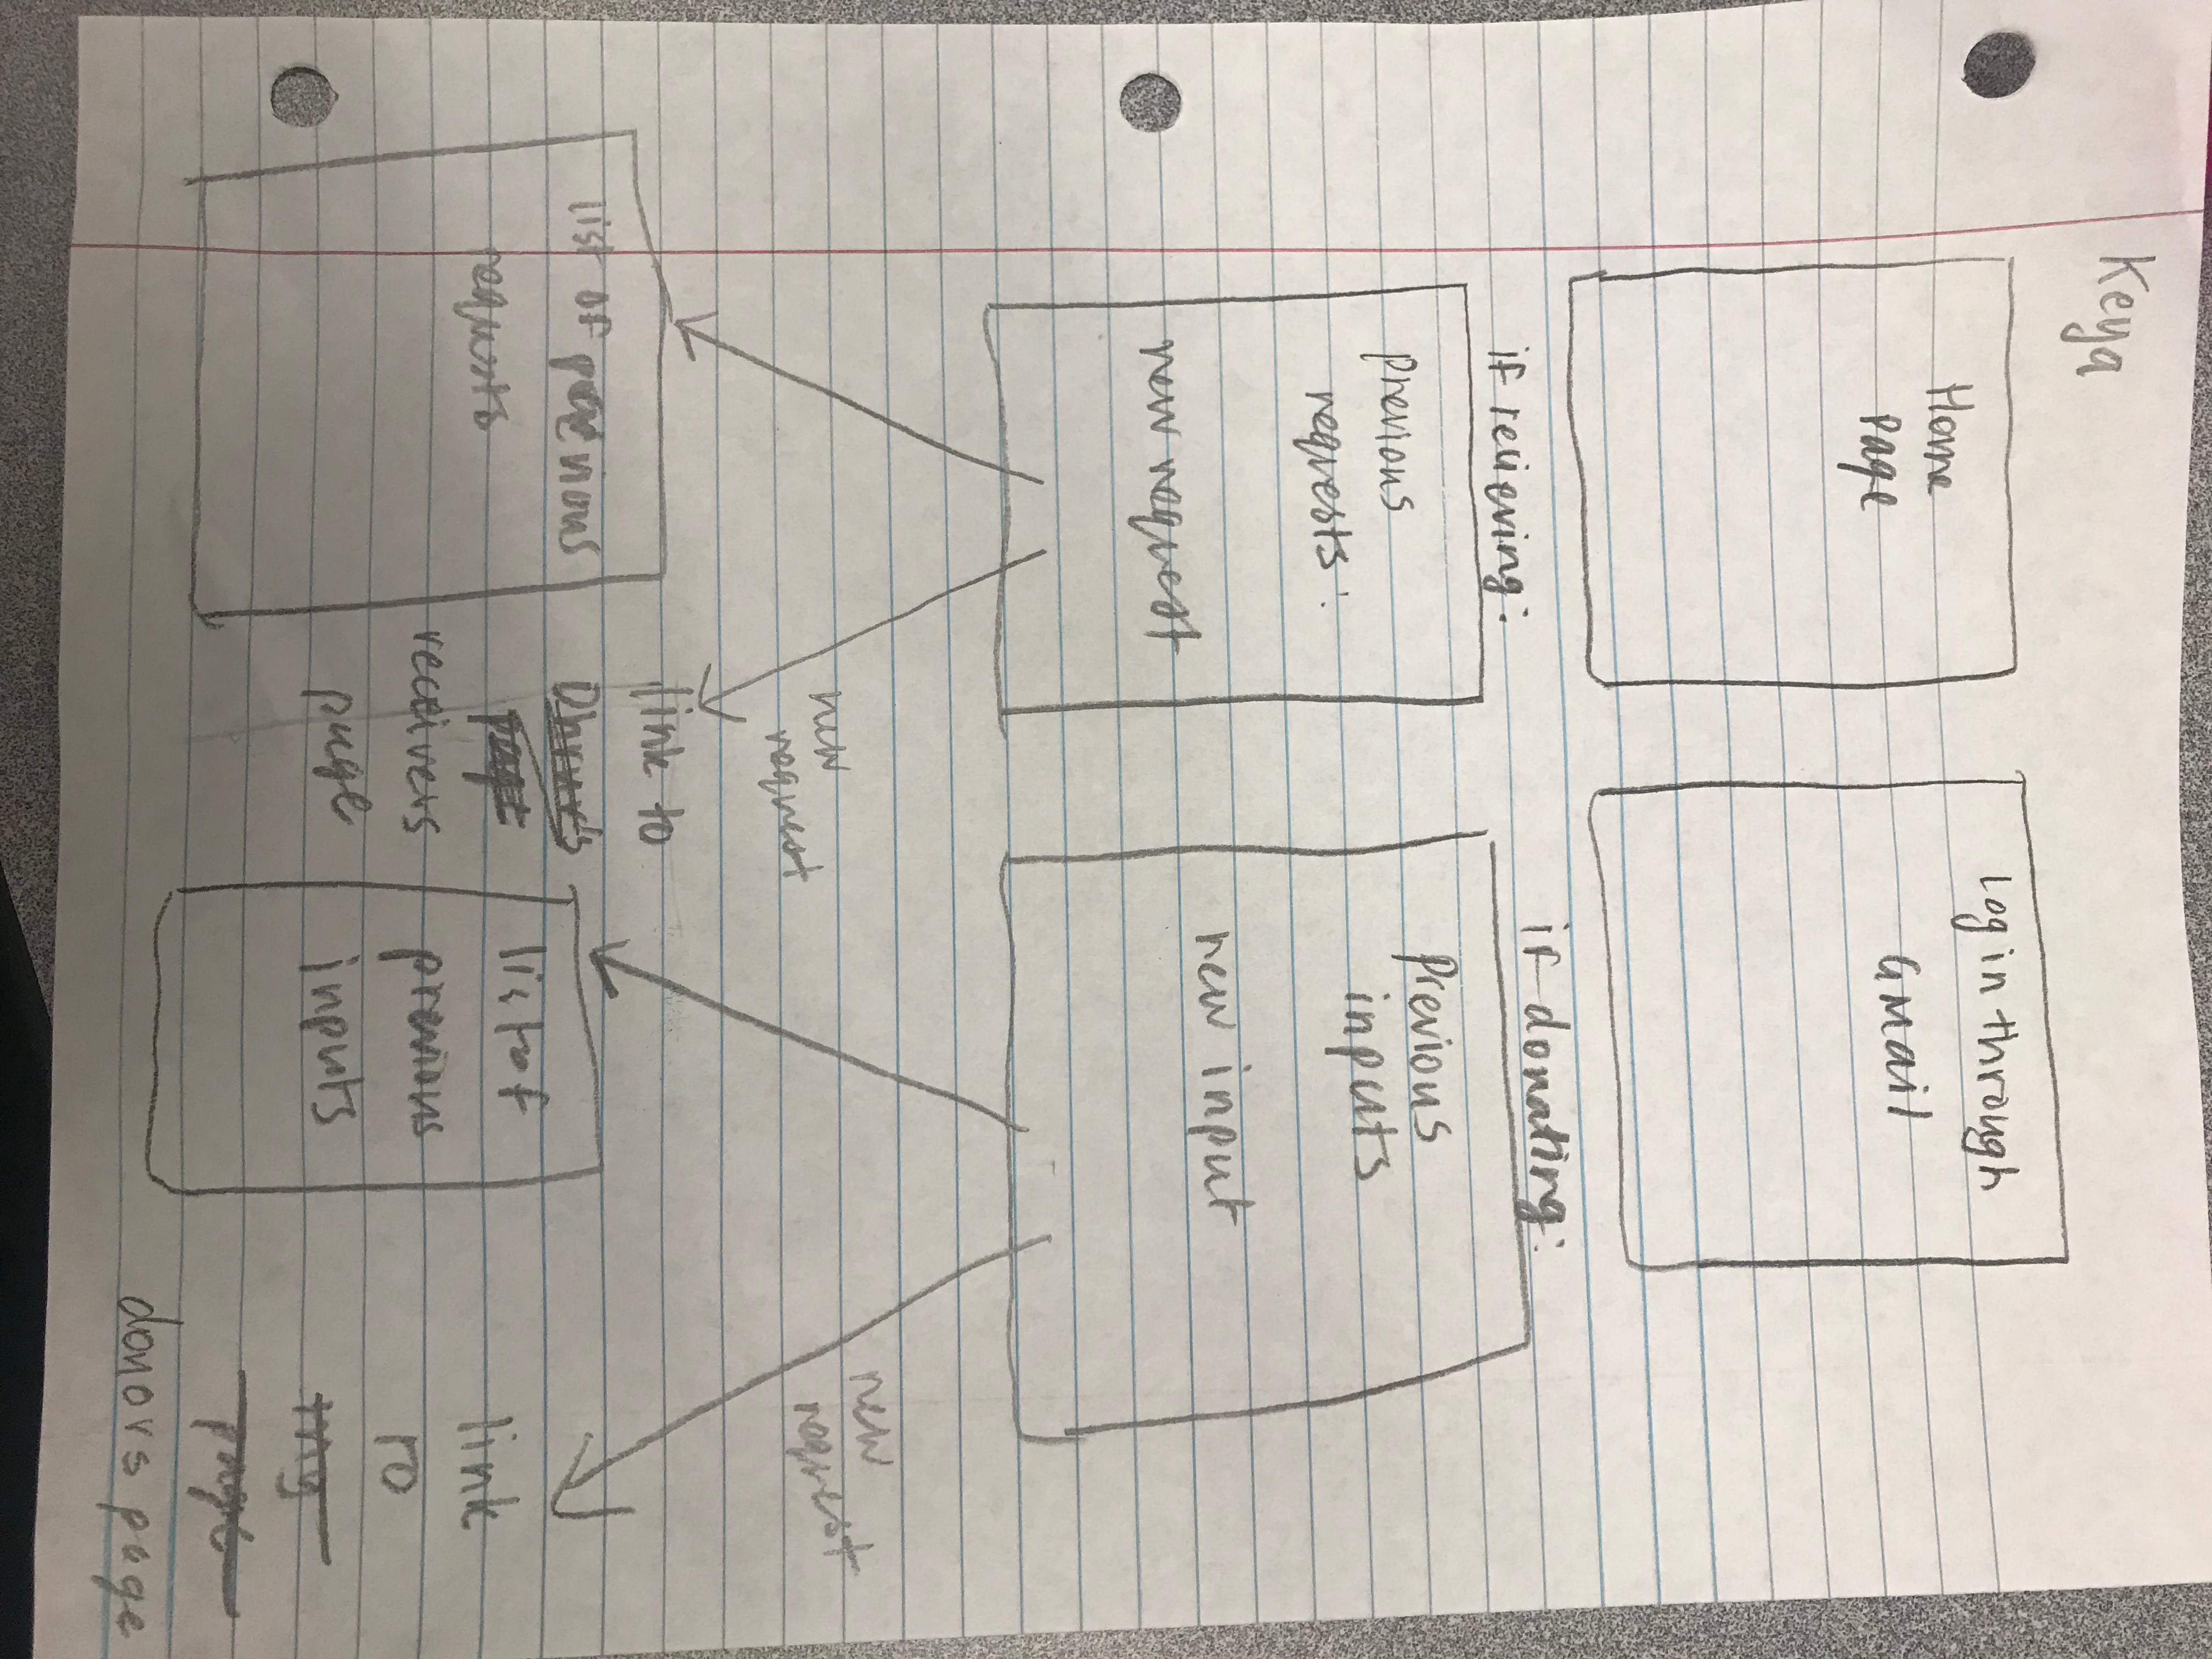 Keya
Home
Page
Log in through
Gmail
if recieving:
previous
requests:
new request
if donating:
Previous
inputs
new input
new
request
new
request
list of previous
requests
link to
receivers
page
list of
previous
inputs
link
to
donors page